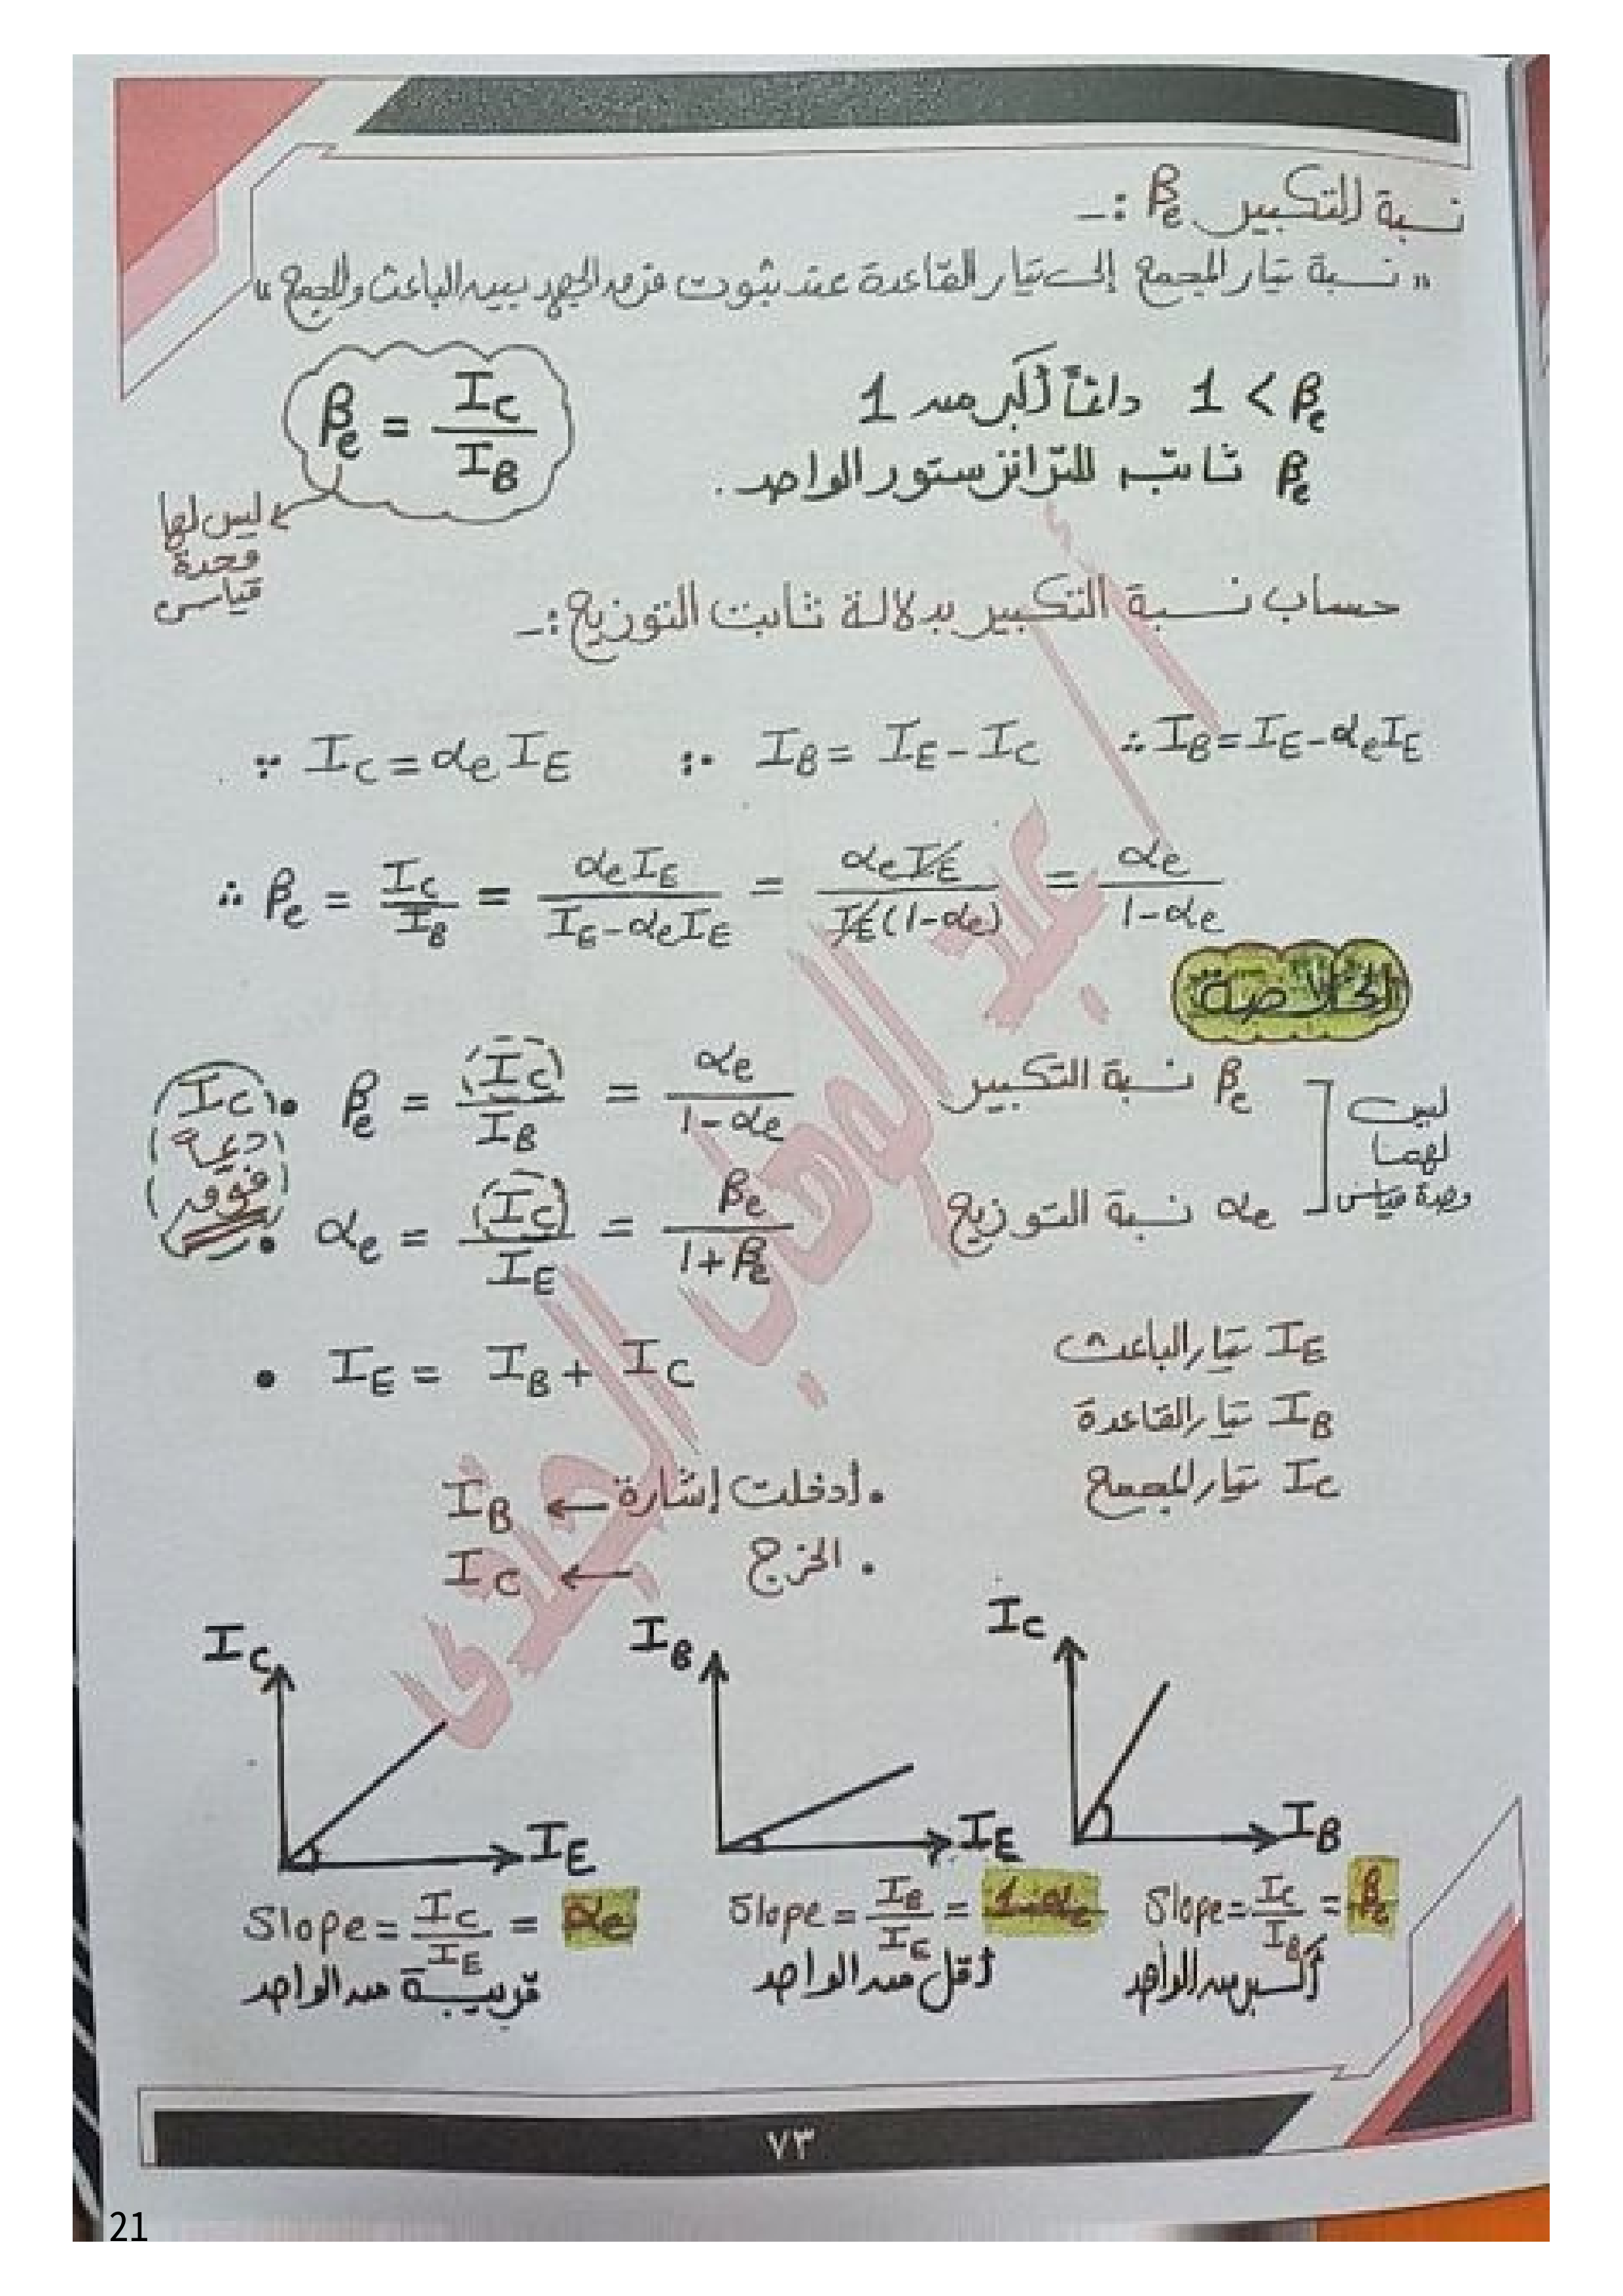 نسبة التكبير βe :-
" نسبة تيار المجمع إلى تيار القاعدة عند ثبوت فرق الجهد بين الباعث والمجمع "
βe = IC / IB
ليس لها
وحدة
قياس
1 < βe دائماً أكبر من 1
βe ثابت للترانزستور الواحد .
حساب نسبة التكبير بدلالة ثابت التوزيع :-
∵ IC = αe IE ∵ IB = IE - IC ∴ IB = IE - αe IE
∴ βe = IC / IB = αe IE / IE - αe IE = αe IE / IE (1 - αe) = αe / 1 - αe
الخلاصة
• βe = IC / IB = αe / 1 - αe
βe نسبة التكبير
• αe = IC / IE = βe / 1 + βe
αe نسبة التوزيع
ليس
لهما
وحدة قياس
IC
دعيه
فوق
• IE = IB + IC
IE تيار الباعث
IB تيار القاعدة
IC تيار المجمع
• أدخلت إشارة ← IB
• الخرج ← IC
IC
IE
Slope = IC / IE = αe
قريبة من الواحد
IB
IE
Slope = IB / IE = 1 - αe
أقل من الواحد
IC
IB
Slope = IC / IB = βe
أكبر من الواحد
عبد الوهاب الجندى
٧٣
21